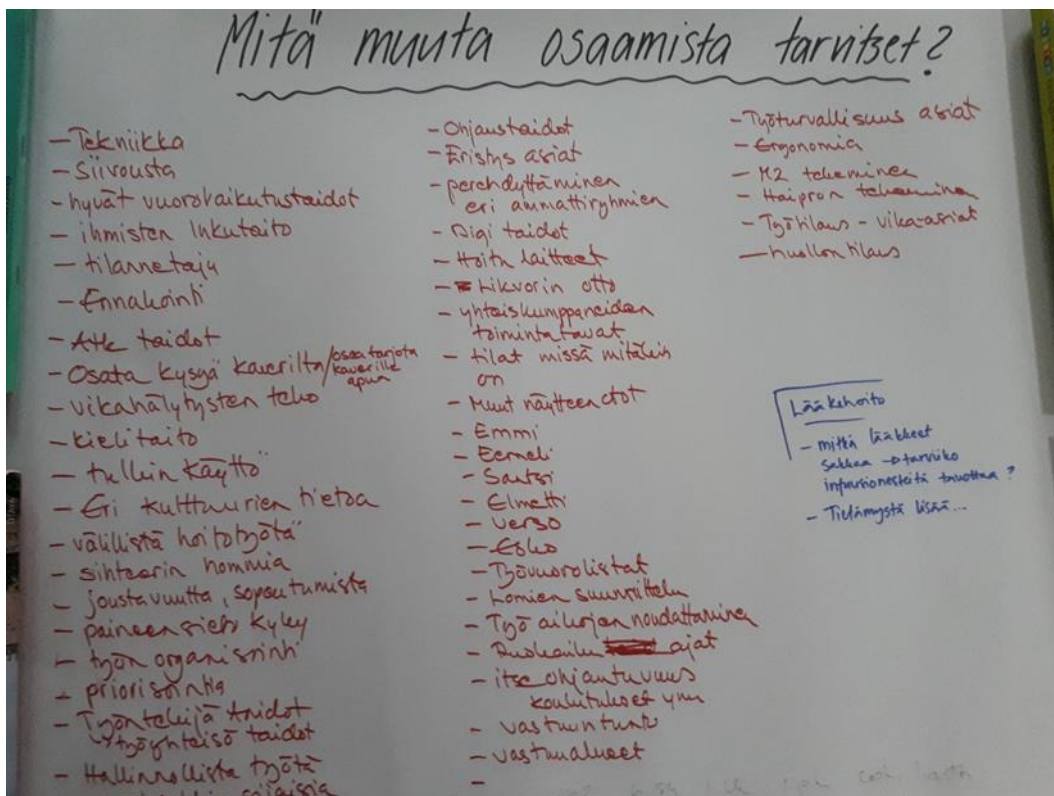 Mitä muuta osaamista tarvitset?
- Tekniikka
- Siivousta
- hyvät vuorovaikutustaidot
- ihmisten lukutaito
- tilannetaju
- Ennakointi
- Atk taidot
- Osata kysyä kaverilta/osaa tarjota
kaverille
apua
- vikahälytysten teko
- kielitaito
- tulkin käyttö
- Eri kulttuurien tietoa
- välillistä hoitotyötä
- sihteerin hommia
- joustavuutta, sopeutumista
- paineensieto kyky
- työn organisointi
- priorisointia
- Työntekijä taidot
↳ työyhteisö taidot
- Hallinnollista työtä
- Ohjaustaidot
- Eristys asiat
- perehdyttäminen
eri ammattiryhmien
- Digi taidot
- Hoito laitteet
- Likvorin otto
- yhteiskumppaneiden
toimintatavat
- tilat missä mitäkin
on
- Muut näytteenotot
- Emmi
- Eemeli
- Santsi
- Elmetti
- Verso
- Esko
- Työvuorolistat
- Lomien suunnittelu
- Työ aikojen noudattaminen
- Ruokailu ajat
- itseohjautuvuus
koulutukset ym
- vastuuntunto
- vastuualueet
-
- Työturvallisuus asiat
- Ergonomia
- M2 tekeminen
- Haipron tekeminen
- Työtilaus - vika-asiat
- huollon tilaus
Lääkehoito
- mitkä lääkkeet
sakkaa → tarviiko
infuusionesteitä tauottaa?
- Tietämystä lisää...